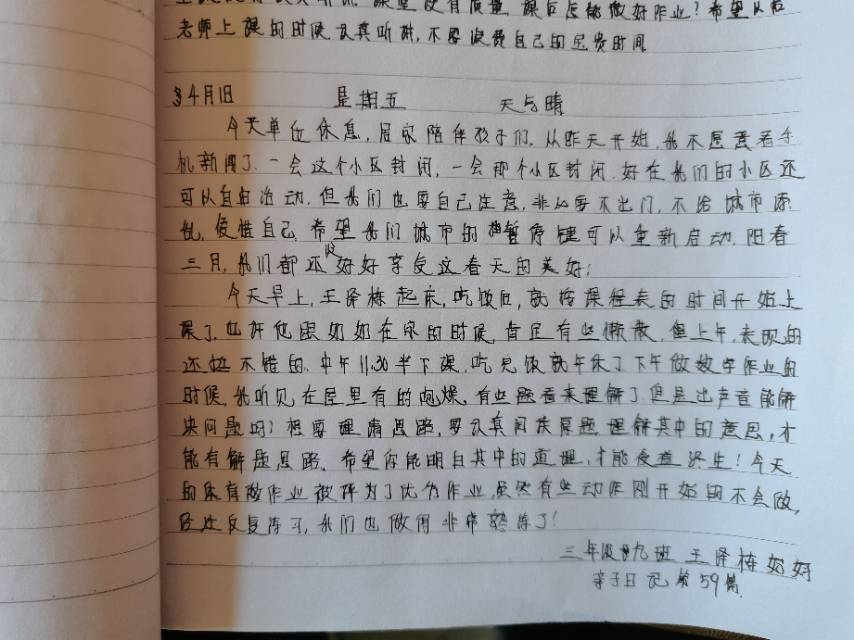 课堂没有质量,课后怎能做好作业?希望以后
老师上课的时候认真听讲,不要浪费自己的宝贵时间
4月1日 星期五 天气晴
今天单位休息,居家陪伴孩子们,从昨天开始,我不愿意看手
机新闻了.一会这个小区封闭,一会那个小区封闭.好在我们的小区还
可以自由活动,但我们也要自己注意,非必要不出门,不给城市添
乱,牺牲自己.希望我们城市的暂停键可以重新启动.阳春
三月,我们都还没好好享受这春天的美好;
今天早上,王泽栋起床,吃饭后,就按课程表的时间开始上
课了.也许他跟奶奶在家的时候,肯定有些懒散,但上午,表现的
还挺不错的.中午11:30半下课,吃完饭就午休了下午做数学作业的
时候,我听见在屋里有的咆燥,有些题看来理解了但是出声音能解
决问题吗?想要理清思路,要认真阅读原题.理解其中的意思,才
能有解题思路.希望你能明白其中的道理,才能受益终生!今天
的体育做作业被评为了优秀作业,虽然有些动作刚开始的不会做,
经过反复练习,我们也做得非常熟练了!
三年级九班 王泽栋妈妈
亲子日记第59篇.